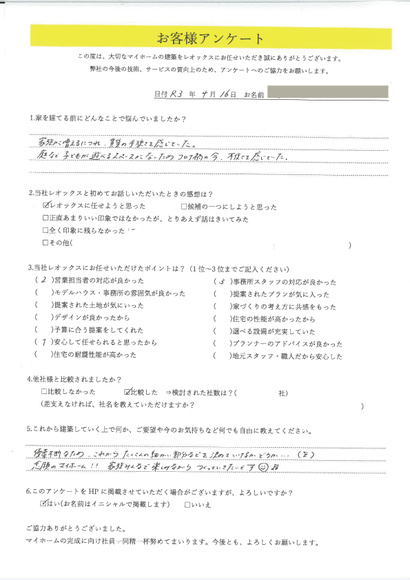 お客様アンケート
この度は、大切なマイホームの建築をレオックスにお任せいただき誠にありがとうございます。
弊社の今後の技術、サービスの質向上のため、アンケートへのご協力をお願いします。
日付 R3 年 4 月 16 日 お名前
1.家を建てる前にどんなことで悩んでいましたか？
家族が増えるにつれ、賃貸の手狭さを感じていた。
庭など子どもが遊べるスペースがないためコロナ禍の今、不便さを感じていた。
2.当社レオックスと初めてお話しいただいたときの感想は？
☑レオックスに任せようと思った □候補の一つにしようと思った
□正直あまりいい印象ではなかったが、とりあえず話はきいてみた
□全く印象に残らなかった
□その他( )
3.当社レオックスにお任せいただけたポイントは？（1位～3位までご記入ください）
( 2 )営業担当者の対応が良かった ( 3 )事務所スタッフの対応が良かった
( )モデルハウス・事務所の雰囲気が良かった ( )提案されたプランが気に入った
( )提案された土地が気にいった ( )家づくりの考え方に共感をもった
( )デザインが良かったから ( )住宅の性能が高かったから
( )予算に合う提案をしてくれた ( )選べる設備が充実していた
( 1 )安心して任せられると思ったから ( )プランナーのアドバイスが良かった
( )住宅の耐震性能が高かった ( )地元スタッフ・職人だから安心した
4.他社様と比較されましたか？
□比較しなかった ☑比較した ⇒検討された社数は？( 社)
(差支えなければ、社名を教えていただけますか？ )
5.これから建築していく上で何か、ご要望や今のお気持ちなど何でも自由に教えてください。
優柔不断なため、これから たくさんの細かい部分などを決めていけるかどうか…
念願のマイホーム!! 家族みんなで楽しみながら つくっていきたいです
6.このアンケートをHPに掲載させていただく場合がございますが、よろしいですか？
☑はい(お名前はイニシャルで掲載します) □いいえ
ご協力ありがとうございました。
マイホームの完成に向け社員一同精一杯努めてまいります。今後とも、よろしくお願いします。